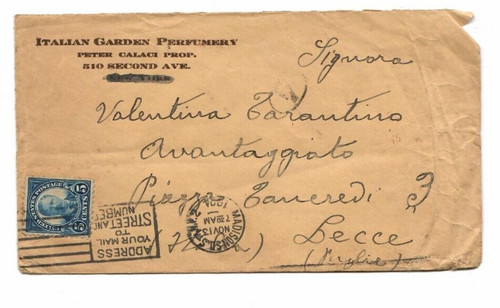 ITALIAN GARDEN PERFUMERY
PETER CALACI PROP.
510 SECOND AVE.
Signora
Valentina Tarantino
Avantaggiato
Piazza Tancredi 3
(Italia) Lecce
(Puglie)
UNITED STATES POSTAGE
5 CENTS 5
ADDRESS
YOUR MAIL
TO
STREET AND
NUMBER
MADISON SQ. STA.
NOV 13
7 30 AM
N.Y.